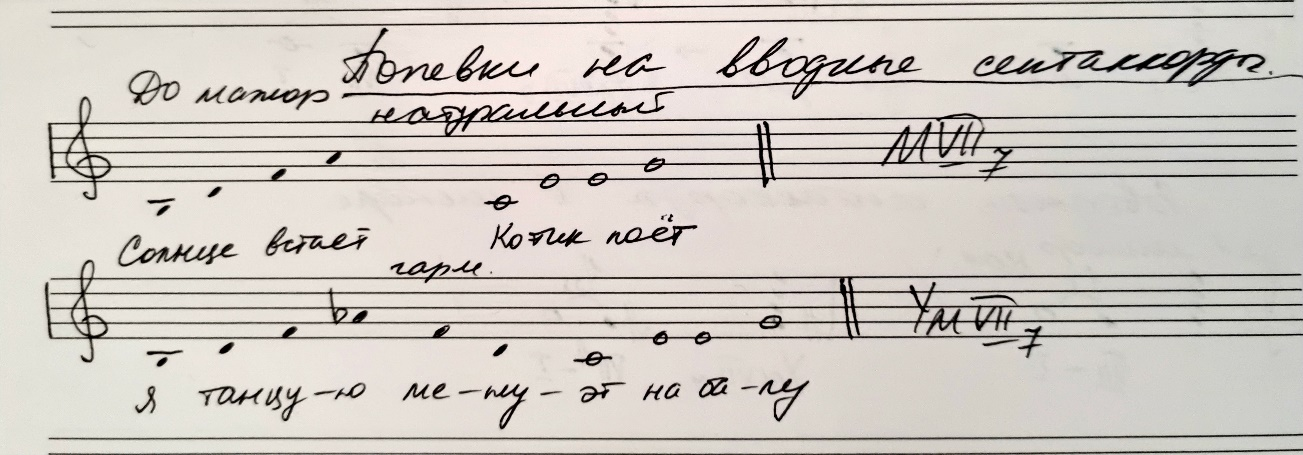 Попевки на вводные септаккорды.
До мажор
натуральный
МVII7
Солнце встаёт Котик поёт
гарм.
УмVII7
Я танцу-ю ме-ну-эт на ба-лу